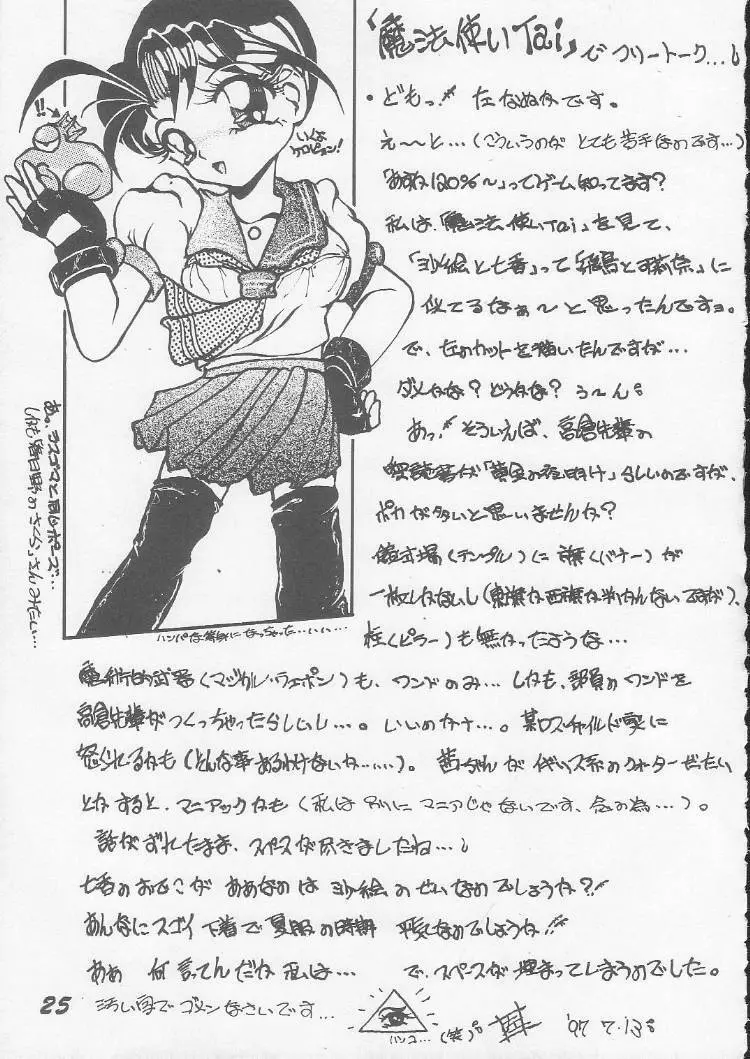 「魔法使いTai」でフリートーク…。
・どもっ!たなぬかです。
え〜と…(こういうのが とても苦手なのです…)
「あすか120%〜」ってゲーム知ってます?
私は「魔法使いTai」を見て、
「沙絵と七香」って「飛鳥と環奈」に
似てるなぁ〜と思ったんですョ。
で、左のカットを描いたんですが…
ダメかな?どうかな?う〜ん。
あっ!そういえば、高倉先輩の
解説書が「黄金の夜明け」らしいのですが、
ポカが多いと思いませんか?
儀式場(テンプル)に旗(バナー)が
一枚しかないし(東旗か西旗か判んないですが)、
柱(ピラー)も無かったような…
魔術的武器(マジカル・ウェポン)も、ワンドのみ…しかも、部員のワンドを
高倉先輩がつくっちゃったらしいし…。いいのかナ…。某ロスチャイルド家に
怒られるかも(どんな事あるわけないか……)。茜ちゃんがイギリス系のクォーターだたい
とかすると、マニアックかも(私は別にマニアじゃないです、念の為…)。
話がずれたまま、スペースが尽きましたね…。
七香のおでこがああなのは沙絵のせいなのでしょうか?!
あんなにスゴイ下着で夏服の時期 平気なのでしょうか!!
あぁ 何言ってんだか私は… で、スペースが埋まってしまうのでした。
25 汚い字でゴメンなさいです…
ハンコ…(笑)。 '97 7.13
!!
いくよ
ケロピョン!
あ。ラスゴマと同じポーズ…
しかも「春日野のさくら」さんみたい…
ハンパな等身になっちゃった……